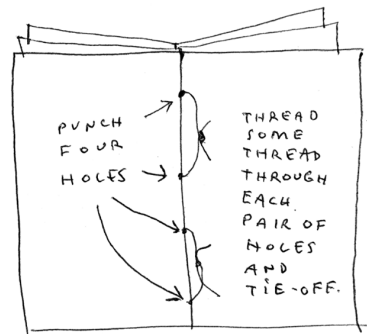 PUNCH
FOUR
HOLES
THREAD
SOME
THREAD
THROUGH
EACH
PAIR OF
HOLES
AND
TIE-OFF.